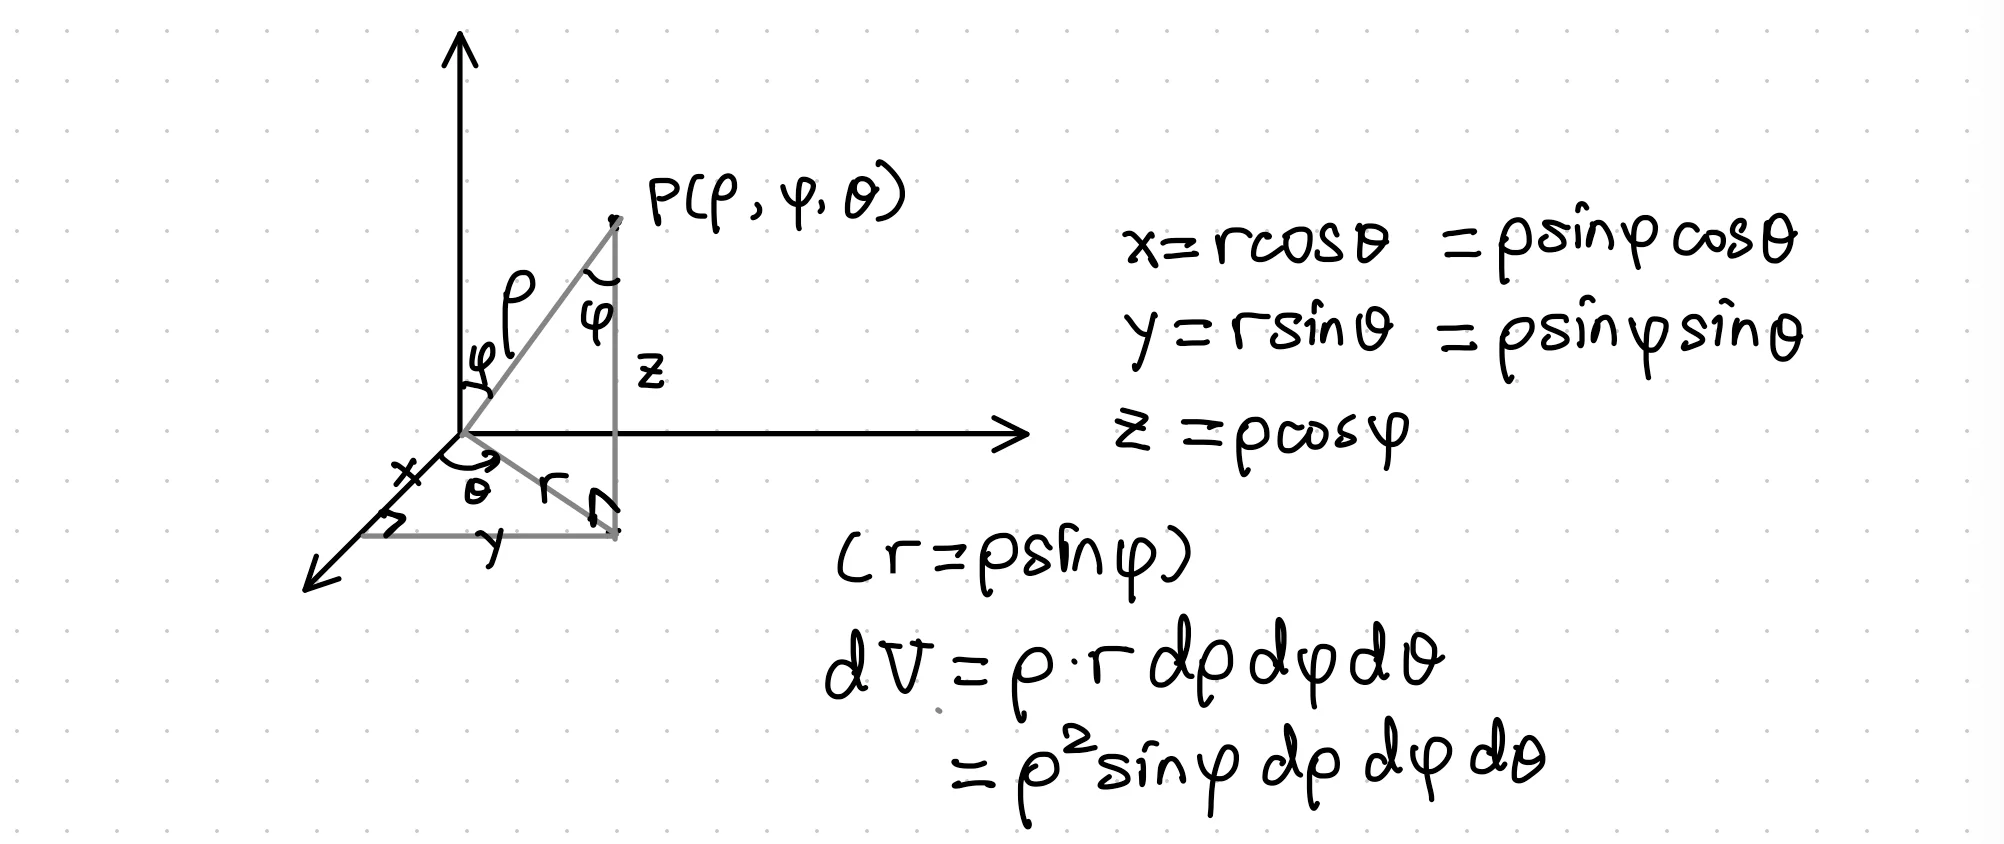 P(ρ, φ, θ)
ρ
φ
φ
z
x
θ
r
y
x = rcosθ = ρsinφcosθ
y = rsinθ = ρsinφsinθ
z = ρcosφ
(r = ρsinφ)
dV = ρ·r dρdφdθ
= ρ²sinφ dρ dφ dθ